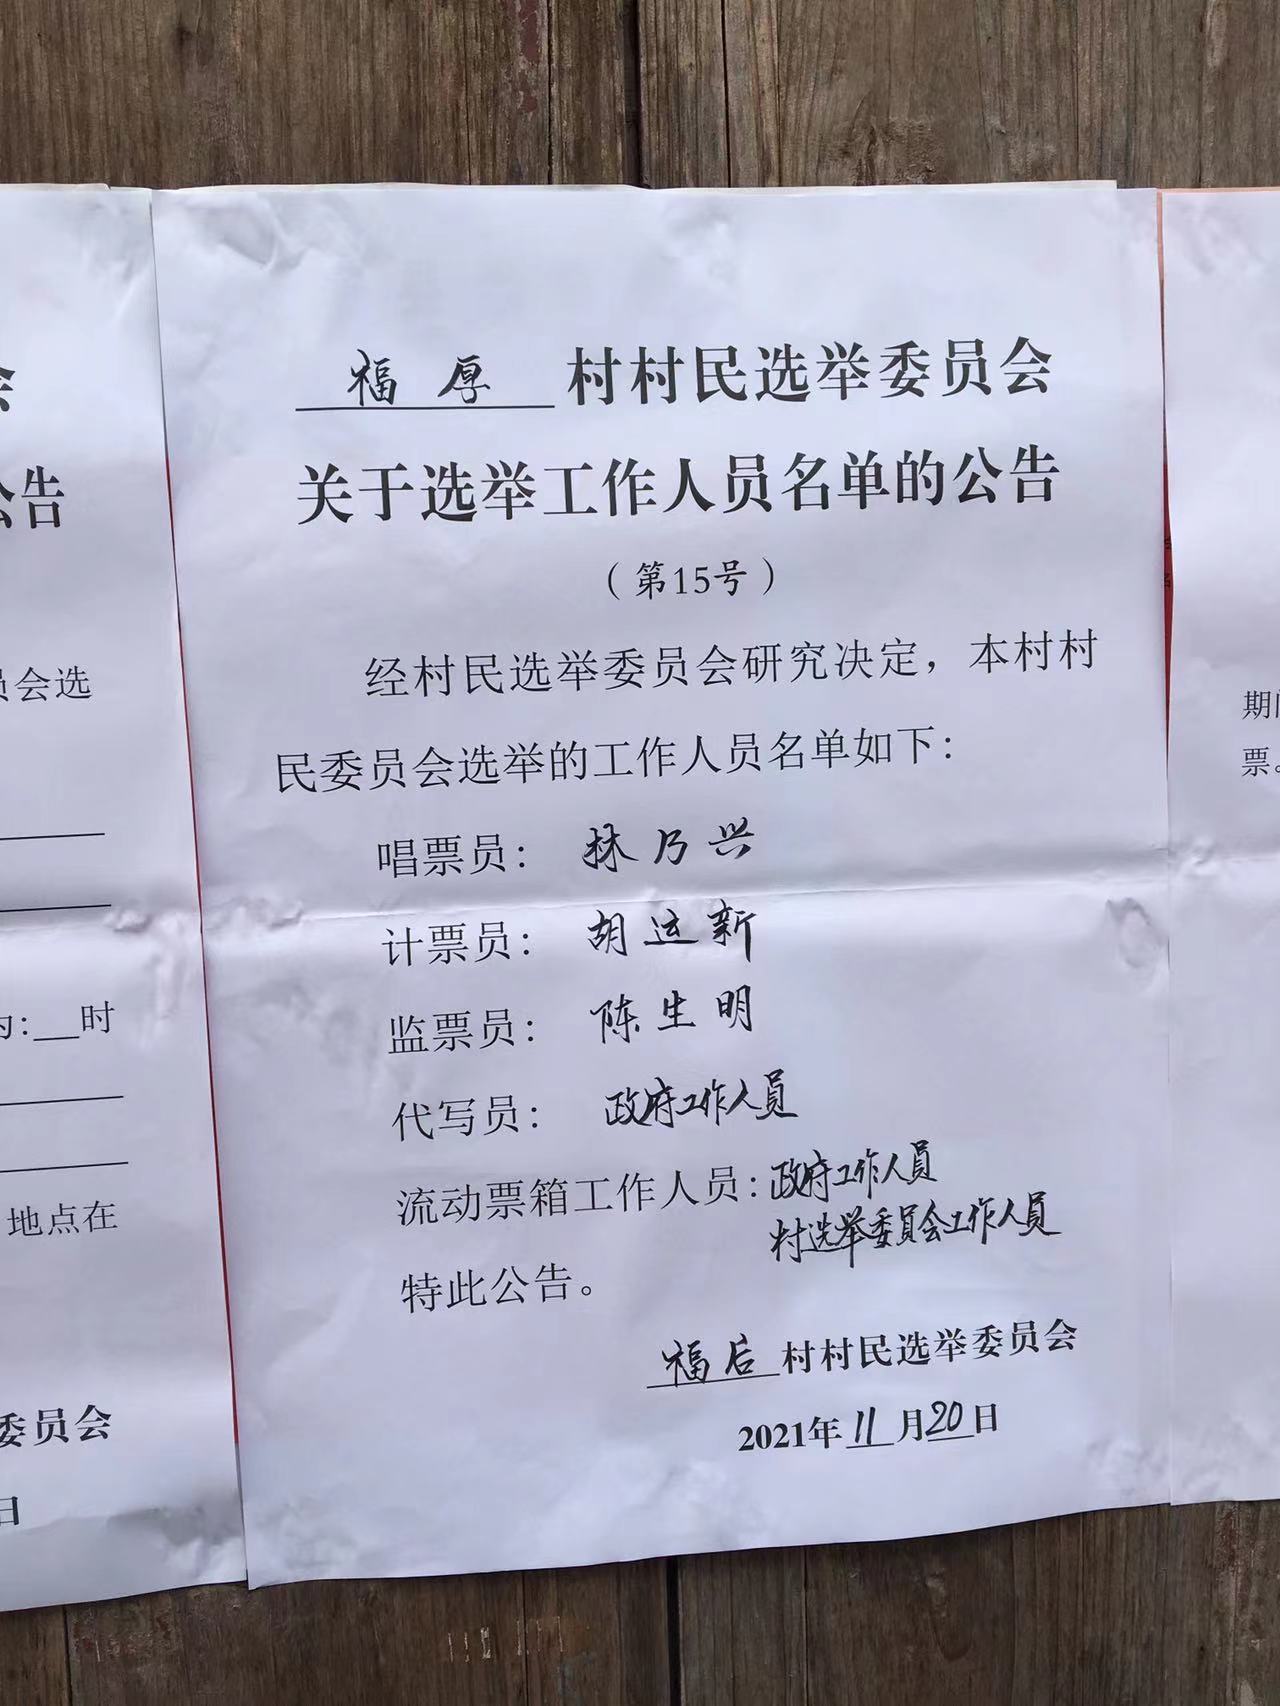 福厚村村民选举委员会
关于选举工作人员名单的公告
（第15号）
经村民选举委员会研究决定，本村村
民委员会选举的工作人员名单如下：
唱票员：林乃兴
计票员：胡运新
监票员：陈生明
代写员：政府工作人员
流动票箱工作人员：政府工作人员
村选举委员会工作人员
特此公告。
福后村村民选举委员会
2021年11月20日
会
公告
员会选
为：__时
地点在
委员会
日
期间
票。